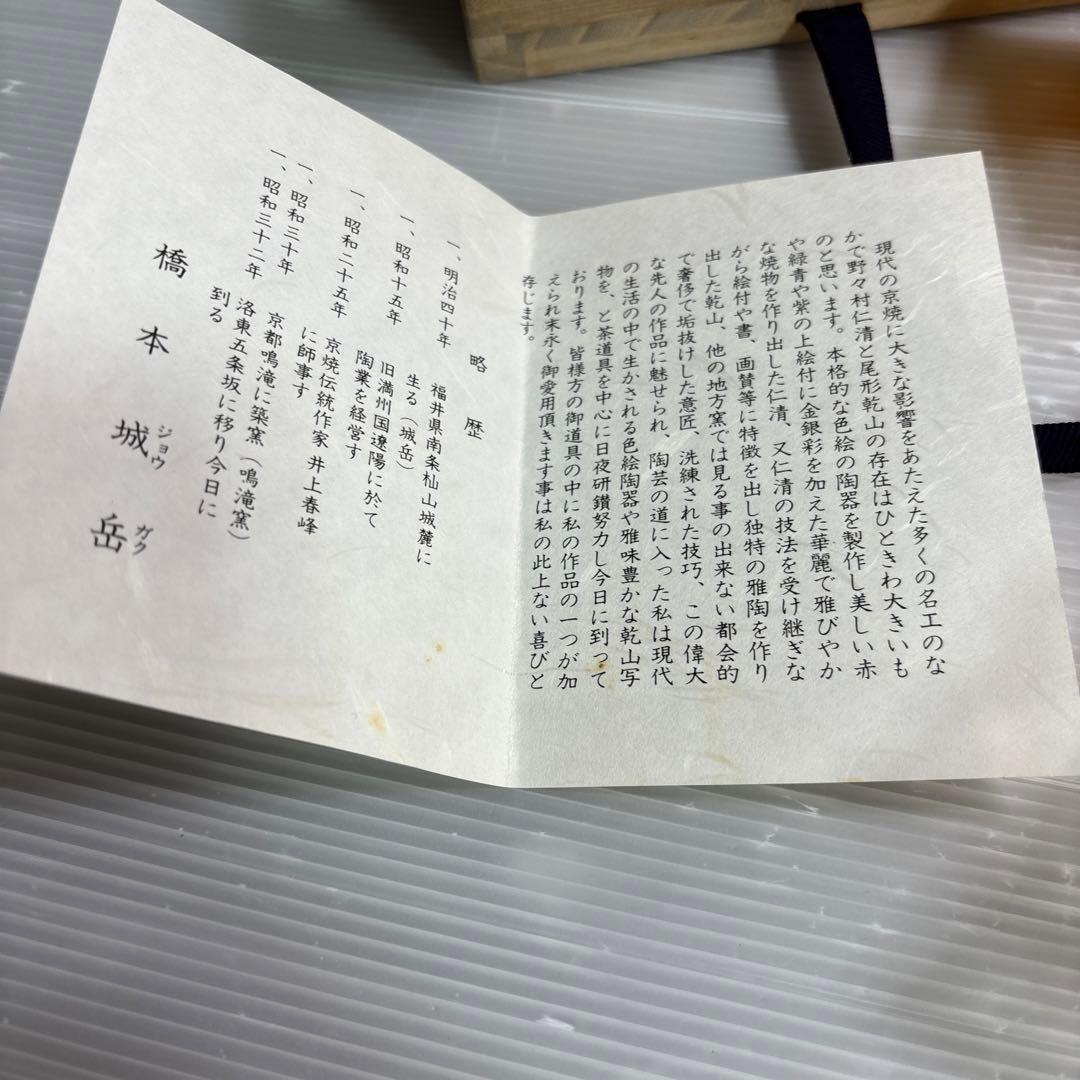 現代の京焼に大きな影響をあたえた多くの名工のな
かで野々村仁清と尾形乾山の存在はひときわ大きいも
のと思います。本格的な色絵の陶器を製作し美しい赤
や緑青や紫の上絵付に金銀彩を加えた華麗で雅びやか
な焼物を作り出した仁清、又仁清の技法を受け継ぎな
がら絵付や書、画賛等に特徴を出し独特の雅陶を作り
出した乾山、他の地方窯では見る事の出来ない都会的
で奢侈で垢抜けした意匠、洗練された技巧、この偉大
な先人の作品に魅せられ、陶芸の道に入った私は現代
の生活の中で生かされる色絵陶器や雅味豊かな乾山写
物を、と茶道具を中心に日夜研鑽努力し今日に到って
おります。皆様方の御道具の中に私の作品の一つが加
えられ末永く御愛用頂きます事は私の此上ない喜びと
存じます。
略歴
一、明治四十年 福井県南条杣山城麓に
生る（城岳）
一、昭和十五年 旧満州国遼陽に於て
陶業を経営す
一、昭和二十五年 京焼伝統作家 井上春峰
に師事す
一、昭和三十年 京都鳴滝に築窯（鳴滝窯）
一、昭和三十二年 洛東五条坂に移り今日に
到る
橋本城岳
ジョウ ガク